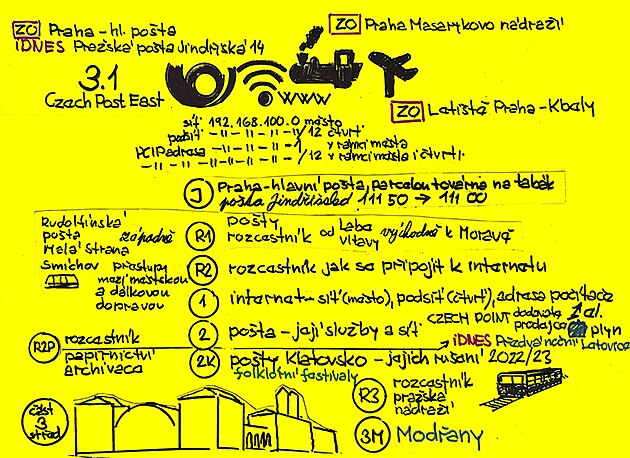 ZO Praha - hl. pošta
iDNES Pražská pošta Jindřišská 14
ZO Praha Masarykovo nádraží
3.1
Czech Post East
www
ZO Letiště Praha - Kbely
síť 192.168.100.0 město
podsíť -11-11-11-11/12 čtvrť
PC IP adresa -11-11-11-1 v rámci města
-11-11-11-11/12 v rámci města i čtvrti
J Praha-hlavní pošta, parcelou továrna na tabák
pošta Jindřišská 111 50 → 111 00
Rudolfínská
pošta západně
Malá Strana
Smíchov přestupy
mezi městskou
a dálkovou
dopravou
R1 pošty
rozcestník od Labe východně k Moravě
Vltavy
R2 rozcestník jak se připojit k internetu
1 internet - síť (město), podsíť (čtvrť), adresa počítače
CZECH POINT dodavatel 1 el.
prodejce plyn
2 pošta - její služby a síť
iDNES
R2P rozcestník
papírnictví
archivace
2K pošty Klatovsko - jejich rušení 2022/23
folklorní festivaly
R3 rozcestník
pražská
nádraží
část
3
střed
3M Modřany